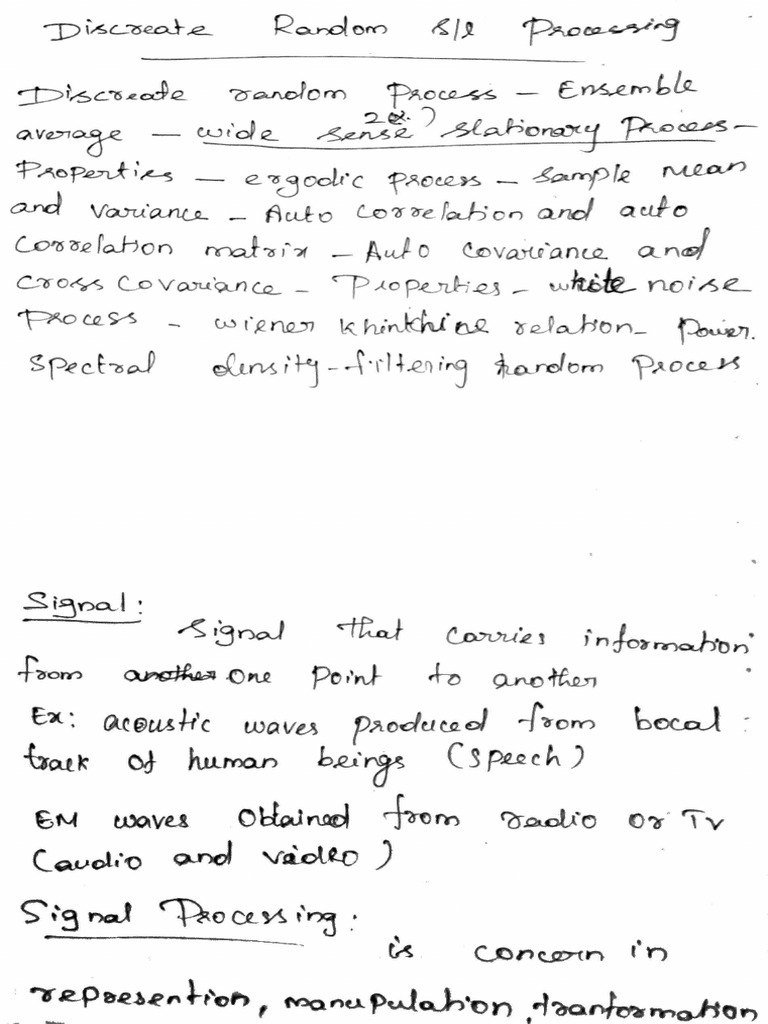 Discreate Random s/l Processing
Discreate random Process - Ensemble
average - wide sense stationary Process -
Properties - ergodic process - sample mean
and variance - Auto correlation and auto
correlation matrix - Auto covariance and
cross covariance - Properties - white noise
Process - wiener khinkhine relation - Power
spectral density - filtering random Process
Signal:
Signal that carries information
from another one point to another
Ex: acoustic waves produced from bocal
track of human beings (speech)
EM waves obtained from radio or Tv
(audio and vaideo)
Signal Processing:
is concern in
represention, manupulation, tranformation